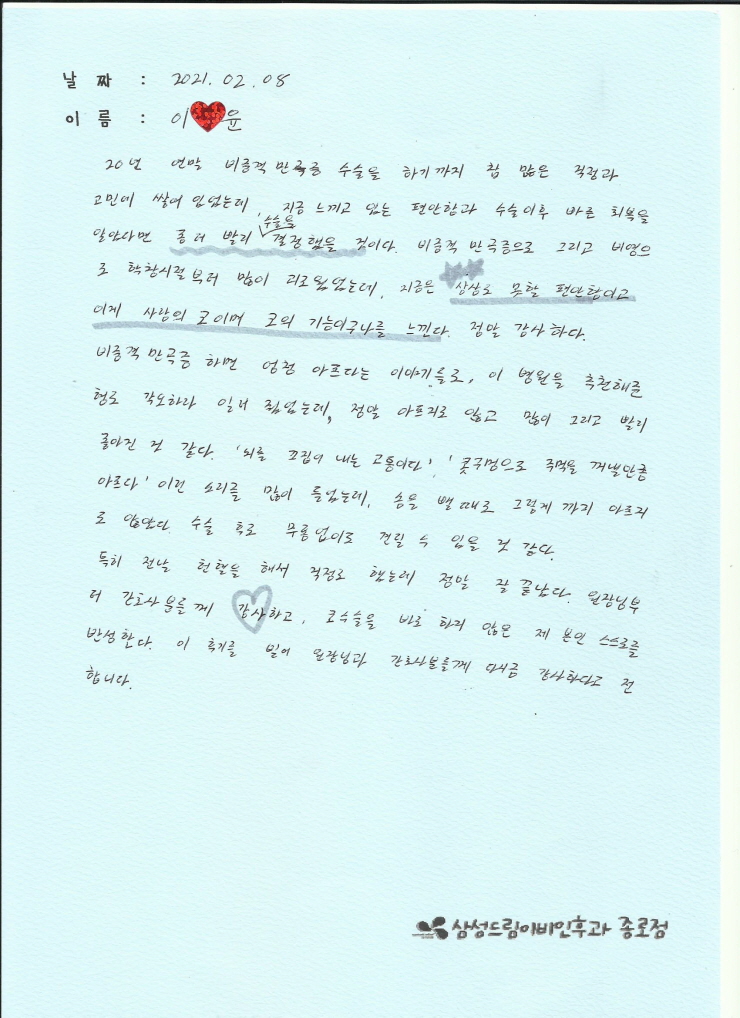 날 짜 : 2021. 02. 08
이 름 : 이 윤
20년 연말 비중격 만곡증 수술을 하기까지 참 많은 걱정과
고민에 쌓여 있었는데, 지금 느끼고 있는 편안함과 수술이후 빠른 회복을
알았다면 좀 더 빨리 수술을 결정했을 것이다. 비중격 만곡증으로 그리고 비염으
로 학창시절부터 많이 괴로웠었는데, 지금은 상상도 못할 편안함이고
이게 사람의 코이며 코의 기능이구나를 느낀다. 정말 감사하다.
비중격만곡증 하면 엄청 아프다는 이야기들로, 이 병원을 추천해준
형도 각오하라 일러 줬었는데, 정말 아프지도 않고 많이 그리고 빨리
좋아진 것 같다. '뇌를 끄집어 내는 고통이다', '콧구멍으로 주먹을 꺼낼만큼
아프다' 이런 소리를 많이 들었는데, 솜을 뺄 때도 그렇게 까지 아프지
도 않았다. 수술 후로 무통없이도 견딜 수 있을 것 같다.
특히 전날 헌혈을 해서 걱정도 했는데 정말 잘 끝났다. 원장님부
터 간호사분들께 감사하고, 코수술을 바로 하지 않은 제 본인 스스로를
반성한다. 이 후기를 빌어 원장님과 간호사분들께 다시금 감사하다고 전
합니다.
삼성드림이비인후과 종로점